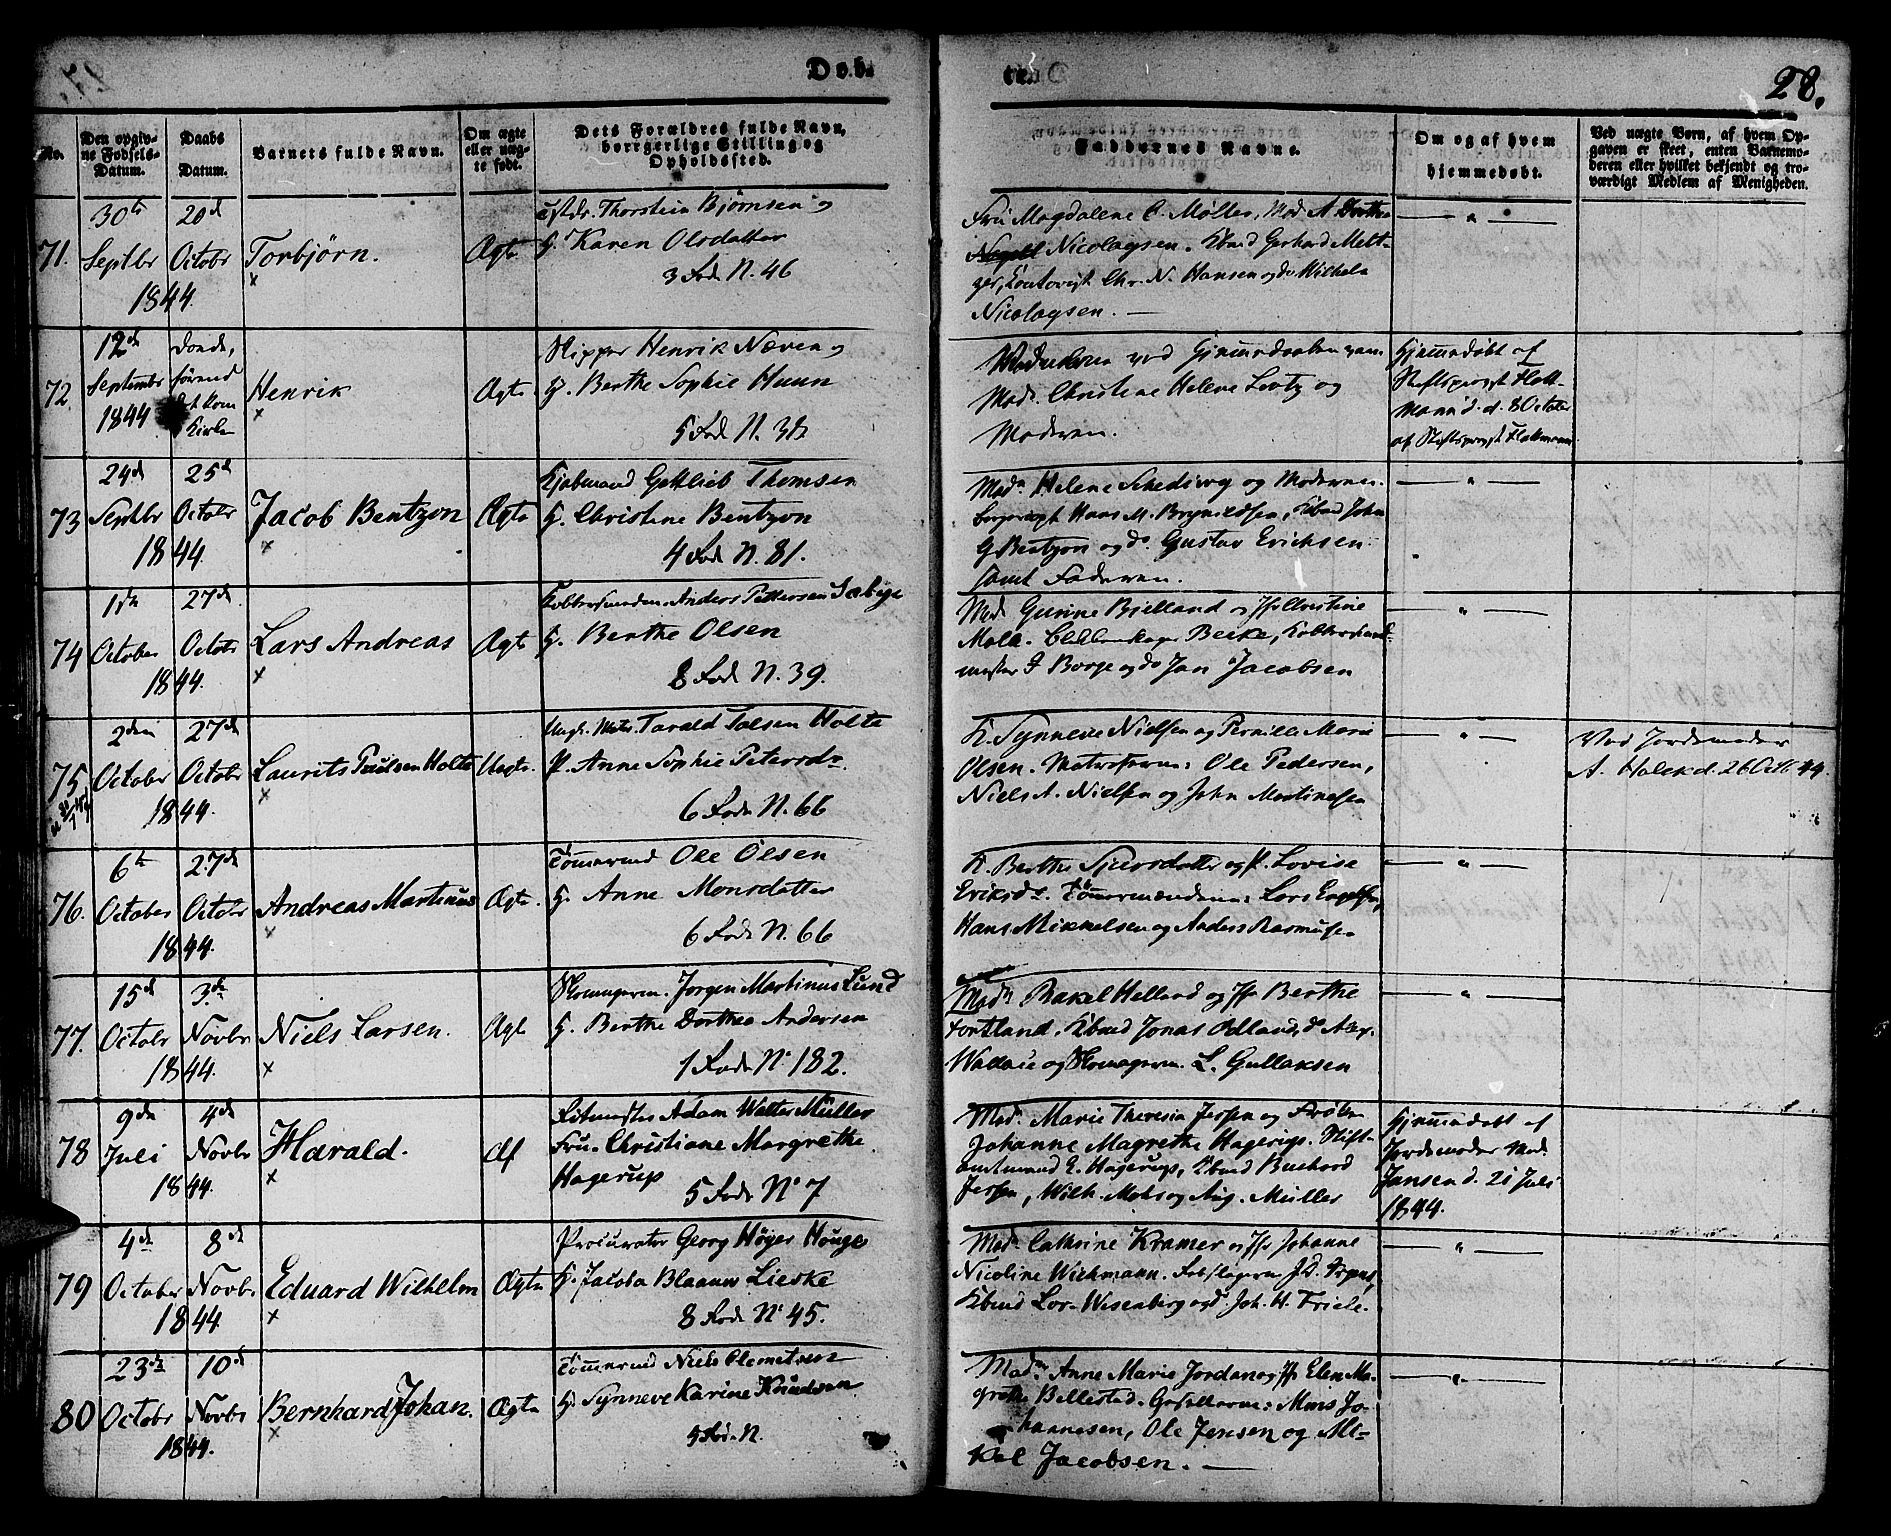 Døb-
te.
28.
No.
Den opgiv-
ne Fødsels-
Datum.
Daabs
Datum.
Barnets fulde Navn.
Om ægte
eller uæg-
te født.
Dets Forældres fulde Navn,
borgerlige Stilling og
Opholdssted.
Faddernes Navne.
Om og af hvem
hjemmedøbt.
Ved uægte Børn, af hvem Op-
gaven er skeet, enten Barnemo-
deren eller hvilket bekjendt og tro-
værdigt Medlem af Menigheden.
71.
30te
Septbr
1844
20de
Octobr
Torbjørn.
Ægte
Thorstein Bjørnsen og
H. Karen Olsdatter
3 Rode N. 46
Fru Magdalene C. Møller, Mad. A. Dorthea
Nicolaysen. Kbmd Gerhard Mett-
zger, Chr. N. Hansen og do Wilhelm
Nicolaysen. —
— " —
72.
12te
Septembr
1844
Henrik
Ægte
Skipper Henrik Næven og
H. Berthe Sophie Huun
5 Rode N. 38
Mad. Christine Helene Lootz og
Moderen.
Hjemmedøbt af
Stiftsprovst Flott-
mann d. 8 October
af Stiftsprovst Flottmann
73
24de
Septbr
1844
25de
Octobr
Jacob Bentzon
Ægte
Kjøbmand Gottlieb Thomsen
H. Christine Bentzon
4 Rode N. 81.
Madm Helene Schediwy og Moderen.
Hans M. Brynildsen, Kbmd John
G Bentzon og do Gustav Ericksen
samt Faderen.
— " —
74
1ste
October
1844.
27de
Octobr
Lars Andreas
Ægte
Anders Pettersen
H. Berthe Olsen
8 Rode N. 39.
Mad Gurine Bielland og Jfr Christine
Beike,
Borge og do Jan Jacobsen
— " —
75
2den
October
1844.
27de
Octobr
Laurits Poulsen Holte
Uægte.
Ungk. Matr. Tarald Tolsen Holte
P. Anne Sophie Petersdr.
6 Rode N. 66
K. Synneve Nielsen og Pernille Marie
Olsen. Matroserne: Ole Pedersen,
Niels A. Nielsen og John Martinesen
— " —
Ved Jordemoder
A. Holck d. 26 Octb 44.
76.
6te
October
1844.
27de
Octobr
Andreas Martinus
Ægte.
Tømmermd Ole Olsen
H. Anne Monsdatter
6 Rode N. 66
K. Berthe Sjursdatter og P. Lovise
Eriksdr. Tømmermændene: Lars
Hans Mikkelsen og Anders Rasmusen
— " —
77.
15de
Octobr
1844.
3die
Novbr
Niels Larsen.
Ægte
Skomagerm. Jørgen Martinus Lund
H. Berthe Dorthea Andersen
1 Rode No 182.
Madm Rakel Helland og Jfr Berthe
Fortland. Kbmd Jonas
og Skomagerm. L. Gullaksen
— " —
78
9de
Juli
1844.
4de
Novbr
Harald.
Adam Walter Müller
Fru Christiane Margrethe
Hagerup
5 Rode No 7
Mad. Marie Theresia Jersen og Frøken
Johanne Magrethe Hagerup. Stift-
amtmand E. Hagerup, Kbmd Buchard
Jersen, Wilh. Mohr og Aug. Müller
Hjemmedøbt af
Jordemoder Mad.
Jansen d. 21 Juli
1844.
79
4de
October
1844.
8de
Novbr
Eduard Wilhelm
Ægte
Procurator Georg Høyer Houge
H. Jacoba Blaauw Lieske
8 Rode No 45.
Mad. Cathrine Kramer og Jfr Johanne
Nicoline Wichmann.
Kbmd Lor. Wesenberg og do Joh. H. Friele.
— " —
80
23de
Octobr
1844.
10de
Novbr
Bernhard Johan.
Ægte
Tømmermd Niels Clemetsen
H. Synneve Karine Knudsen
Madm Anne Marie Jordan og Jfr Elen Ma-
grethe Bellestad. Gesellerne: Mons Jo-
hannesen, Ole Jensen og Mi-
kal Jacobsen. —
— " —